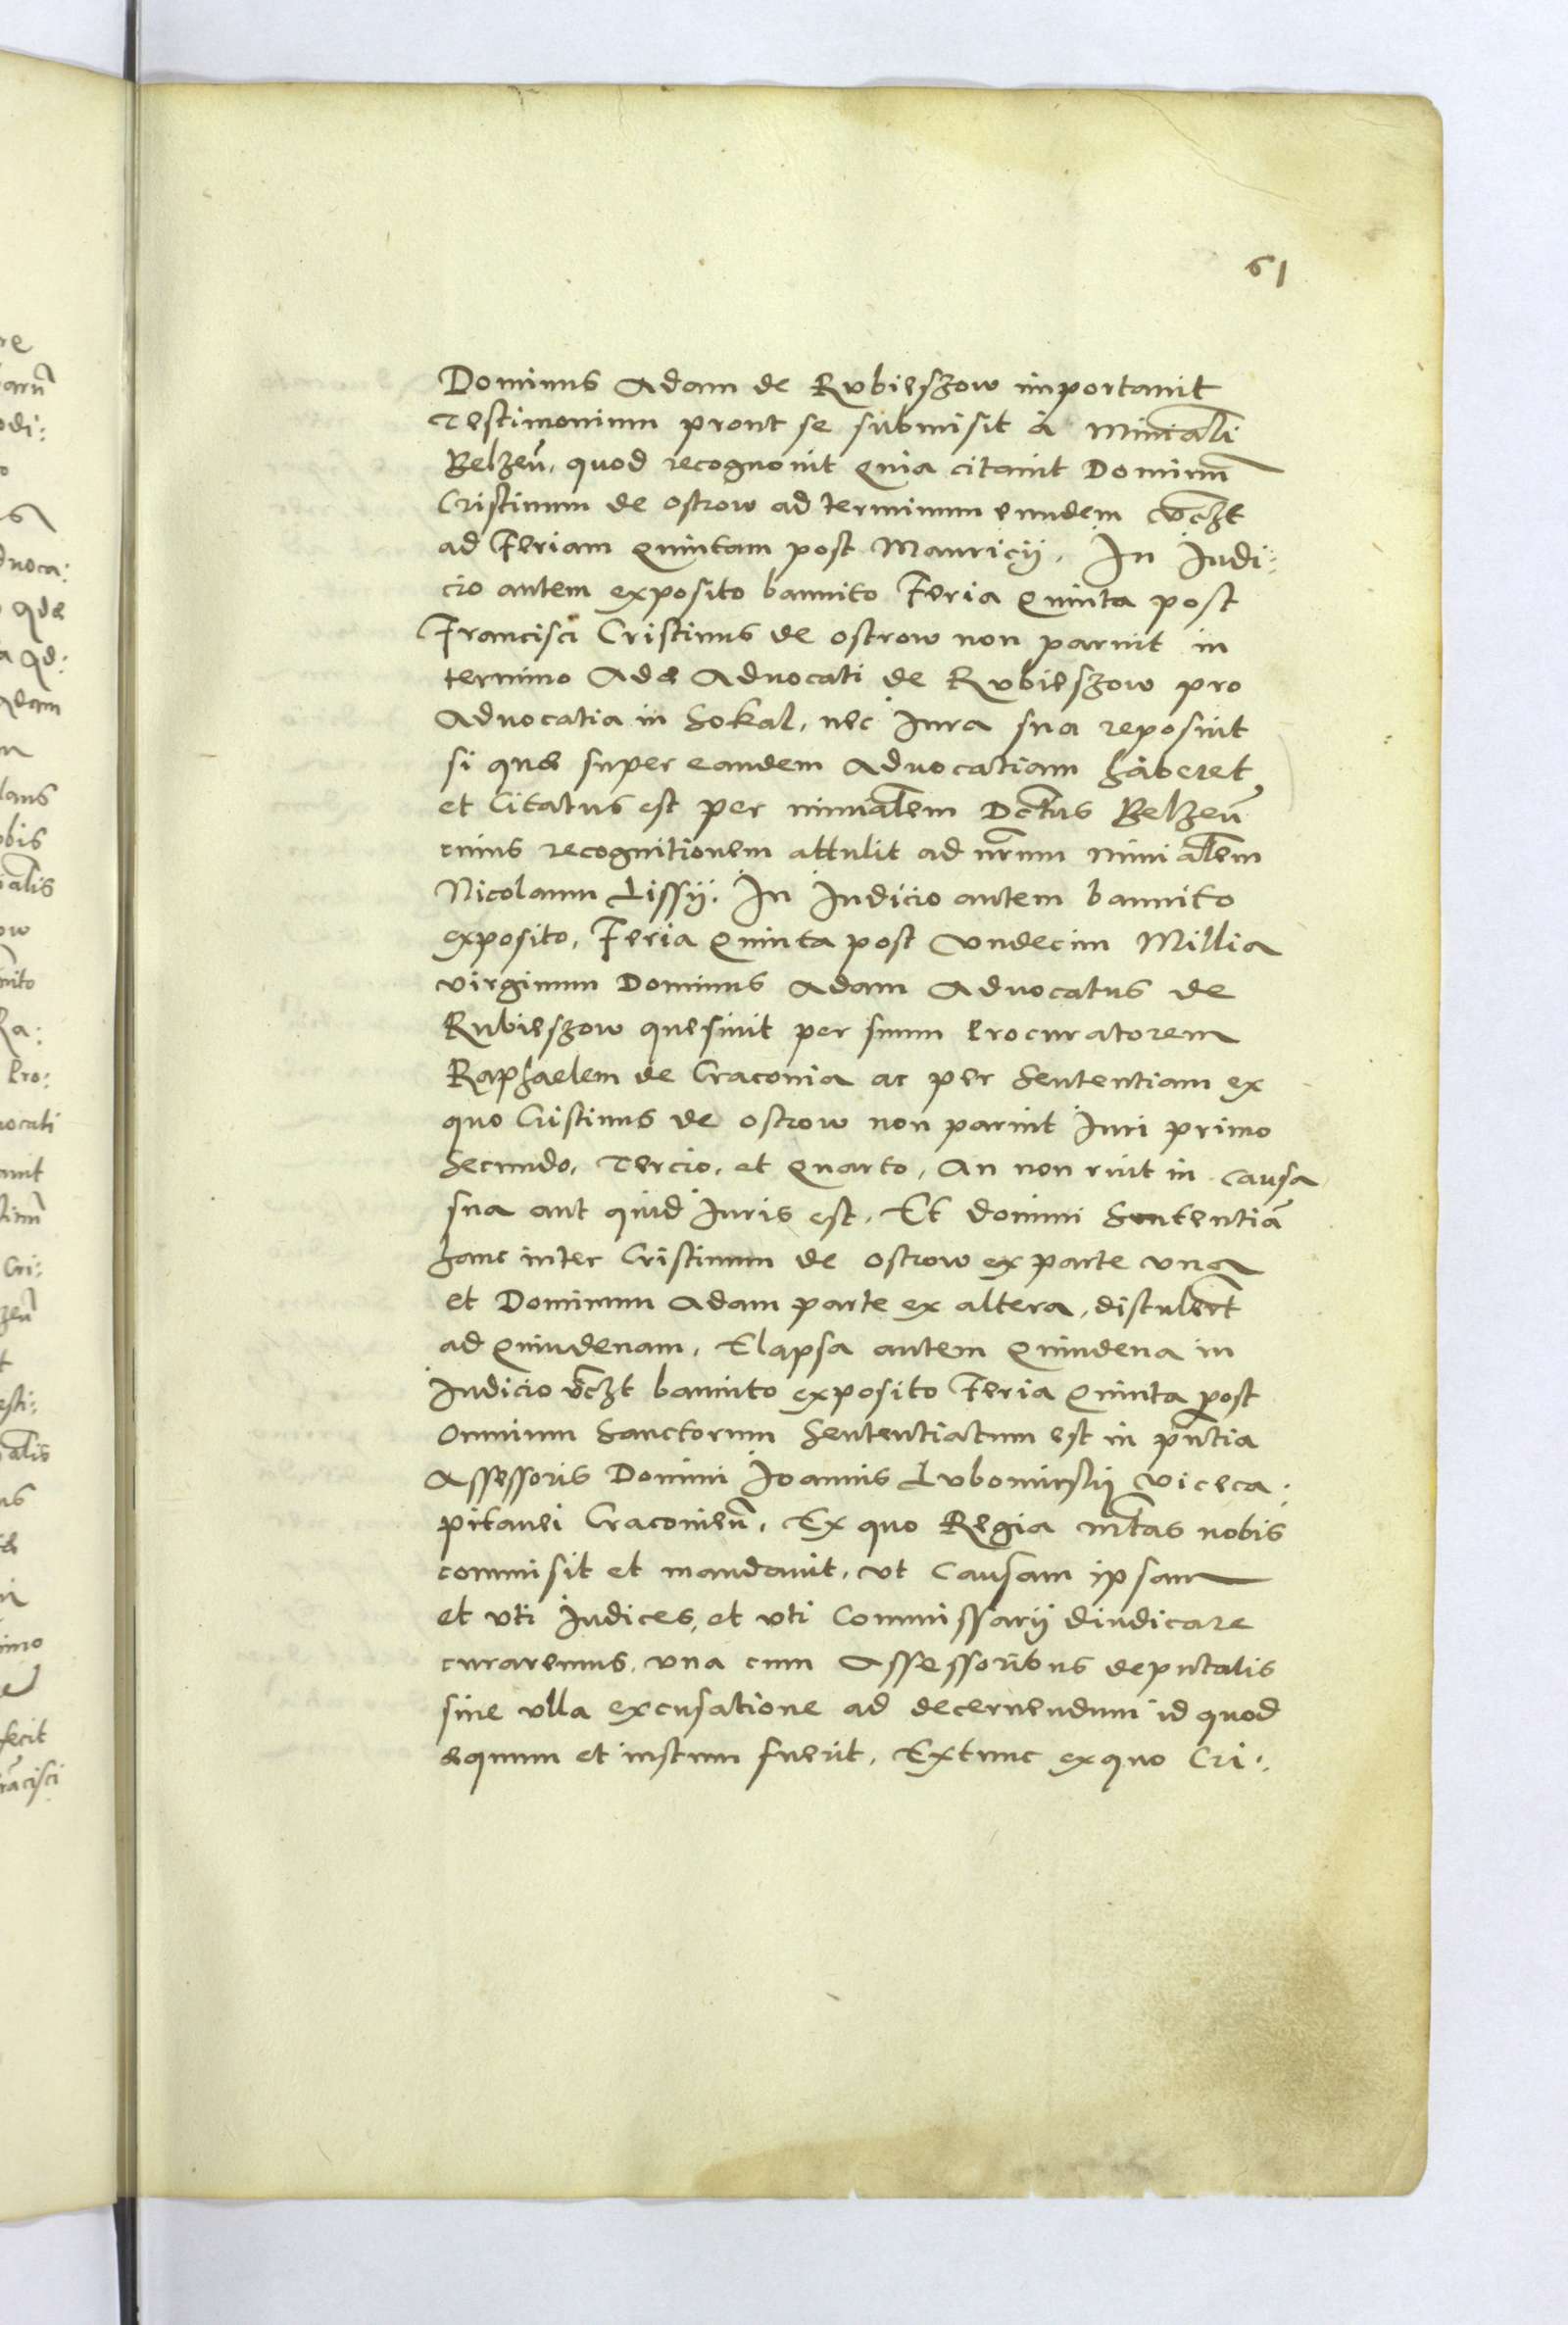 61
Dominus Adam de Rubieszow importauit
Testimonium prout se submisit à Minisťali
Belzeñ. quod recognouit quia citauit Dominũ
Cristinum de ostrow ad terminum eundem
ad Feriam quintam post Mauricij. In Judi:
cio autem exposito bannito Feria quinta post
Francisci Cristinus de ostrow non paruit in
termino Adae Aduocati de Rubieszow pro
Aduocatia in Sokal, nec Jura sua reposuit
si quae super eandem Aduocatiam haberet
et Citatus est per minĩalem Dctus Belzeñ
cuius recognitionem attulit ad nr̃um minialem
Nicolaum Lissij. In Judicio autem bannito
exposito, Feria quinta post Vndecim Millia
virginum Dominus Adam Aduocatus de
Rubieszow quesiuit per suum Procuratorem
Raphaelem de Craconia ac per Sententiam ex
quo Cristinus de ostrow non paruit Juri primo
Secundo, Tercio, et Quarto, An non ruit in causa
sua aut quid Juris est. Et domini Sententiã
hanc inter Cristinum de ostrow ex parte vna
et Dominum Adam parte ex altera, distulerũt
ad Quindenam, Elapsa autem Quindena in
Judicio bannito exposito Feria Quinta post
Omnium Sanctorum Sententiatum est in pñtia
Assessoris Domini Joannis Lubomirskij Viceca:
pitanei Craconieñ. Ex quo Regia Mtas nobis
commisit et mandauit, vt Causam ipsam
et vti Judices, et vti Commissarij diudicare
curaremus, vna cum Assessoribus deputatis
sine vlla excusatione ad decernendum id quod
aequum et iustum fuerit. Extunc ex quo Cri: